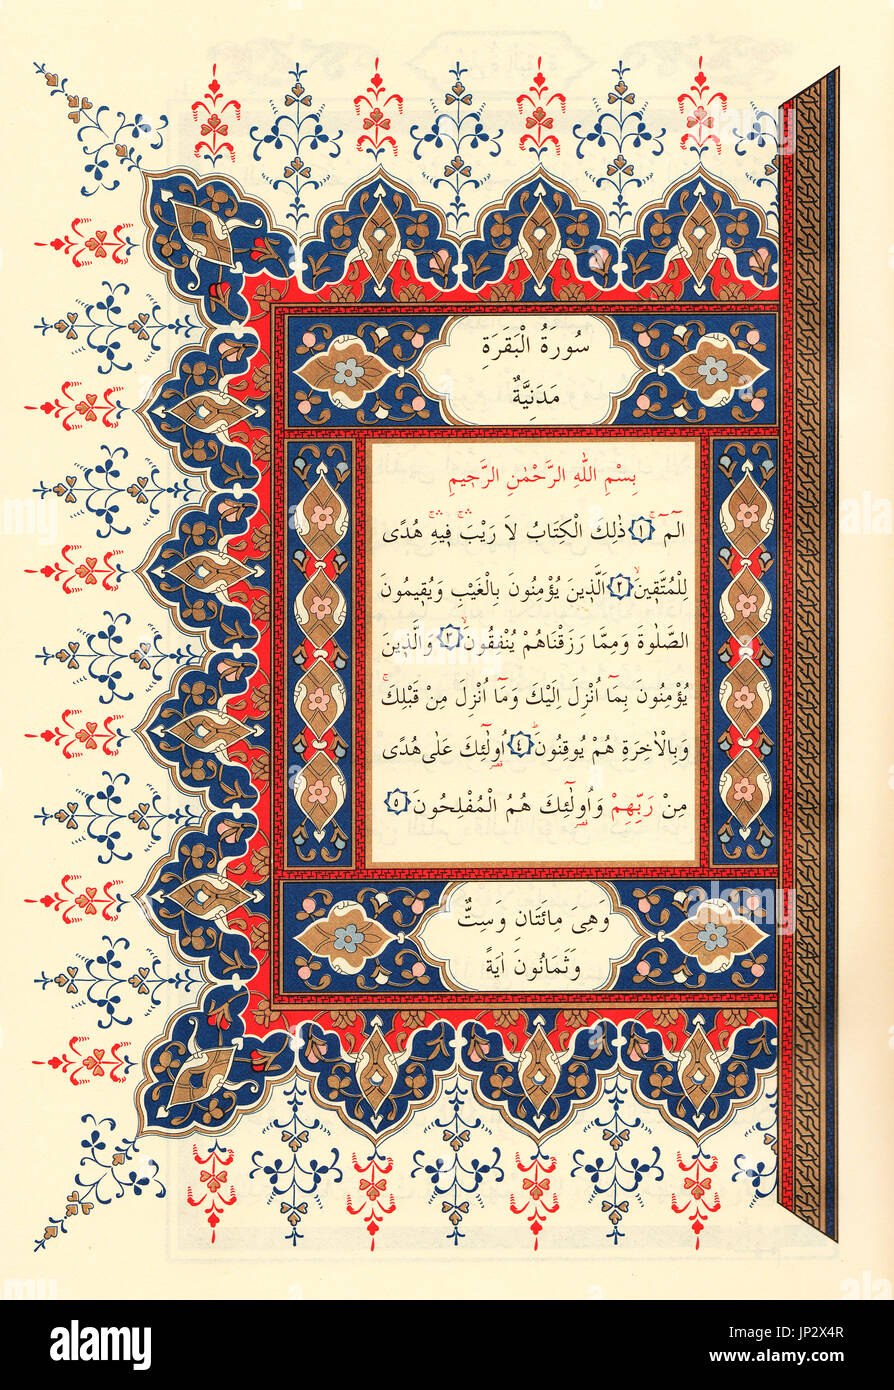 سُورَةُ الْبَقَرَةِ
مَدَنِيَّةٌ
بِسْمِ اللّٰهِ الرَّحْمٰنِ الرَّحِيمِ
الٓمٓ ۚ ﴿١﴾ ذٰلِكَ الْكِتَابُ لَا رَيْبَ ۛ فِيهِ ۛ هُدًى
لِلْمُتَّقِينَ ۙ ﴿٢﴾ اَلَّذِينَ يُؤْمِنُونَ بِالْغَيْبِ وَيُقِيمُونَ
الصَّلٰوةَ وَمِمَّا رَزَقْنَاهُمْ يُنْفِقُونَ ۙ ﴿٣﴾ وَالَّذِينَ
يُؤْمِنُونَ بِمَٓا اُنْزِلَ اِلَيْكَ وَمَٓا اُنْزِلَ مِنْ قَبْلِكَ ۚ
وَبِالْاٰخِرَةِ هُمْ يُوقِنُونَ ۜ ﴿٤﴾ اُولٰٓئِكَ عَلٰى هُدًى
مِنْ رَبِّهِمْ وَاُولٰٓئِكَ هُمُ الْمُفْلِحُونَ ﴿٥﴾
وَهِىَ مِائَتَانِ وَسِتٌّ
وَثَمَانُونَ اٰيَةً
alamy
Image ID: JP2X4R
www.alamy.com